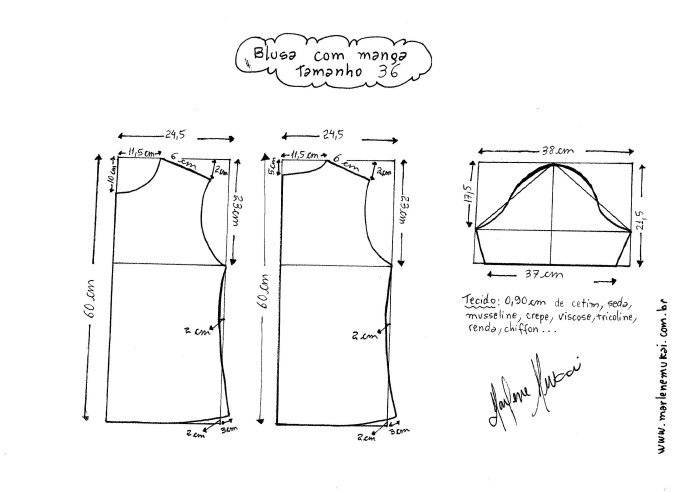 Blusa com manga
Tamanho 36
24,5
11,5 cm
6 cm
2cm
10 cm
23cm
60 cm
2 cm
2 cm
3 cm
24,5
11,5 cm
6 cm
2cm
5 cm
23cm
60 cm
2 cm
2 cm
3 cm
38 cm
17,5
21,5
37 cm
Tecido: 0,90 cm de cetim, seda,
musseline, crepe, viscose, tricoline,
renda, chiffon...
Marlene Mukai
www.marlenemukai.com.br